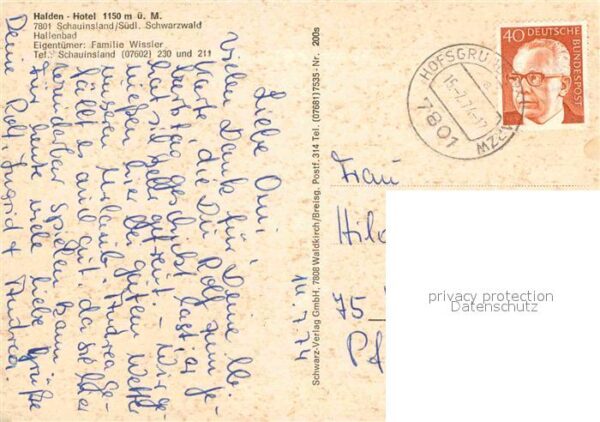 Halden - Hotel 1150 m ü. M.
7801 Schauinsland/Südl. Schwarzwald
Hallenbad
Eigentümer: Familie Wissler
Tel.: Schauinsland (07602) 230 und 211
14.7.74
Liebe Omi,
Vielen Dank für Deine lb.
Karte, die Du Rolf zum Ge-
burtstag geschickt hast, er
hat sich sehr gefreut. - Wir ge-
nießen hier bei guten Wetter
unseren Urlaub. Andrea ge-
fällt es auch gut, da sie hier
wunderbar spielen kann.
Für heute viele liebe Grüße
Deine Rolf, Ingrid + Andrea
Schwarz-Verlag GmbH, 7808 Waldkirch/Breisg. Postf. 314 Tel. (07681)7535-Nr. 200s
HOFSGRUND
7801
40 DEUTSCHE
BUNDESPOST
Frau
75
privacy protection
Datenschutz